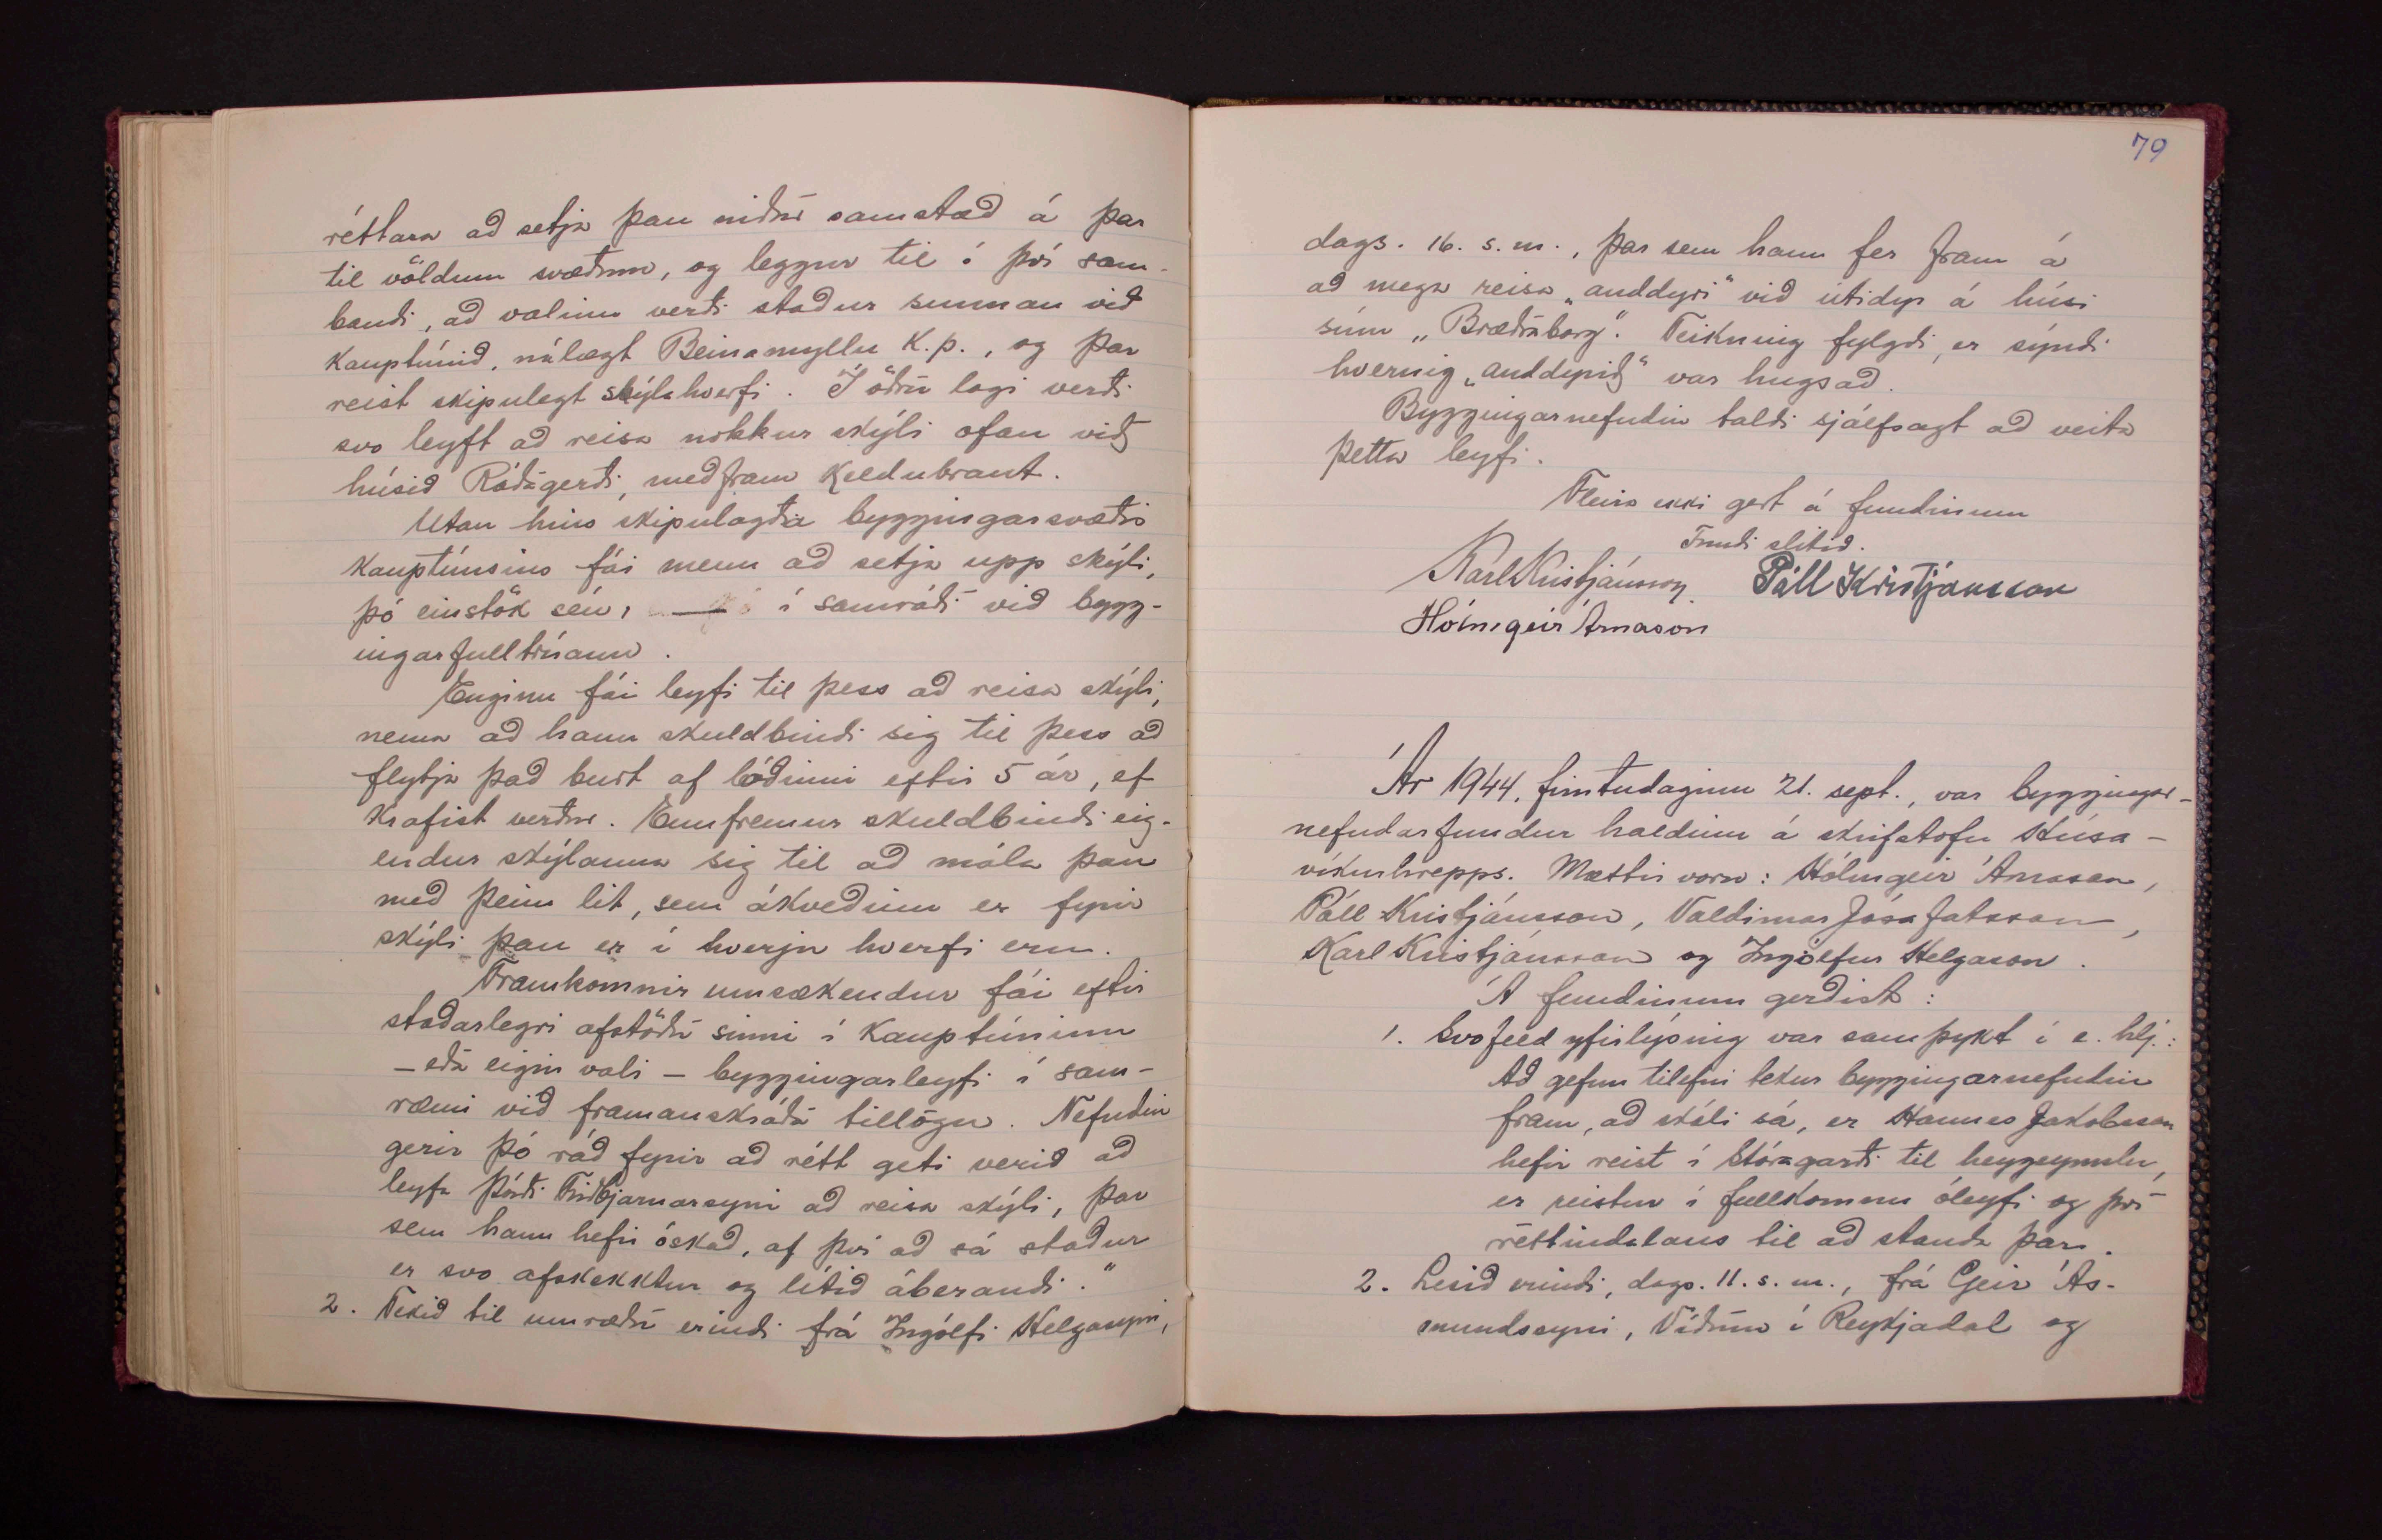 réttara að setja þau niður samstæð á þar
til völdum svæðum, og leggur til í því sam-
bandi, að valinn verði staður sunnan við
kauptúnið, nálægt Beinamyllu K.þ., og þar
reist skipulegt skýlahverfi. Í öðru lagi verði
svo leyft að reisa nokkur skýli ofan við
húsið Ráðagerði, meðfram Keldubraut.
Utan hins skipulagða byggingarsvæðis
kauptúnsins fái menn að setja upp skýli,
þó einstök séu, í samráði við bygg-
ingarfulltrúann.
Enginn fái leyfi til þess að reisa skýli,
nema að hann skuldbindi sig til þess að
flytja það burt af lóðinni eftir 5 ár, ef
krafist verður. Ennfremur skuldbindi eig-
endur skýlanna sig til að mála þau
með þeim lit, sem ákveðinn er fyrir
skýli þau er í hverju hverfi eru.
Framkomnir umsækendur fái eftir
staðarlegri afstöðu sinni í kauptúninu
- eða eigin vali - byggingarleyfi í sam-
ræmi við framanskráða tillögu. Nefndin
gerir þó ráð fyrir að rétt geti verið að
leyfa Þórði Friðbjarnarsyni að reisa skýli, þar
sem hann hefir óskað, af því að sá staður
er svo afskekktur og lítið áberandi."
2. Tekið til umræðu erindi frá Ingólfi Helgasyni,
79
dags. 16. s.m., þar sem hann fer fram á
að mega reisa „anddyri" við útidyr á húsi
sínu „Bræðraborg". Teikning fylgdi, er sýndi
hvernig „anddyrið" var hugsað.
Byggingarnefndin taldi sjálfsagt að veita
þetta leyfi.
Fleira ekki gert á fundinum
Fundi slitið.
Karl Kristjánsson. Páll Kristjánsson
Hólmgeir Árnason
Ár 1944, fimtudaginn 21. sept., var byggingar-
nefndarfundur haldinn á skrifstofu Húsa-
víkurhrepps. Mættir voru: Hólmgeir Árnason,
Páll Kristjánsson, Valdimar Jósafatsson,
Karl Kristjánsson og Ingólfur Helgason.
Á fundinum gerðist:
1. Svofeld yfirlýsing var samþykt í e. hlj.:
Að gefnu tilefni tekur byggingarnefndin
fram, að skáli sá, er Hannes Jakobsson
hefir reist í Stóragarði til heygeymslu,
er reistur í fullkomnu óleyfi og því
réttindalaus til að standa þar.
2. Lesið erindi, dags. 11. s.m., frá Geir Ás-
mundssyni, Víðum í Reykjadal og